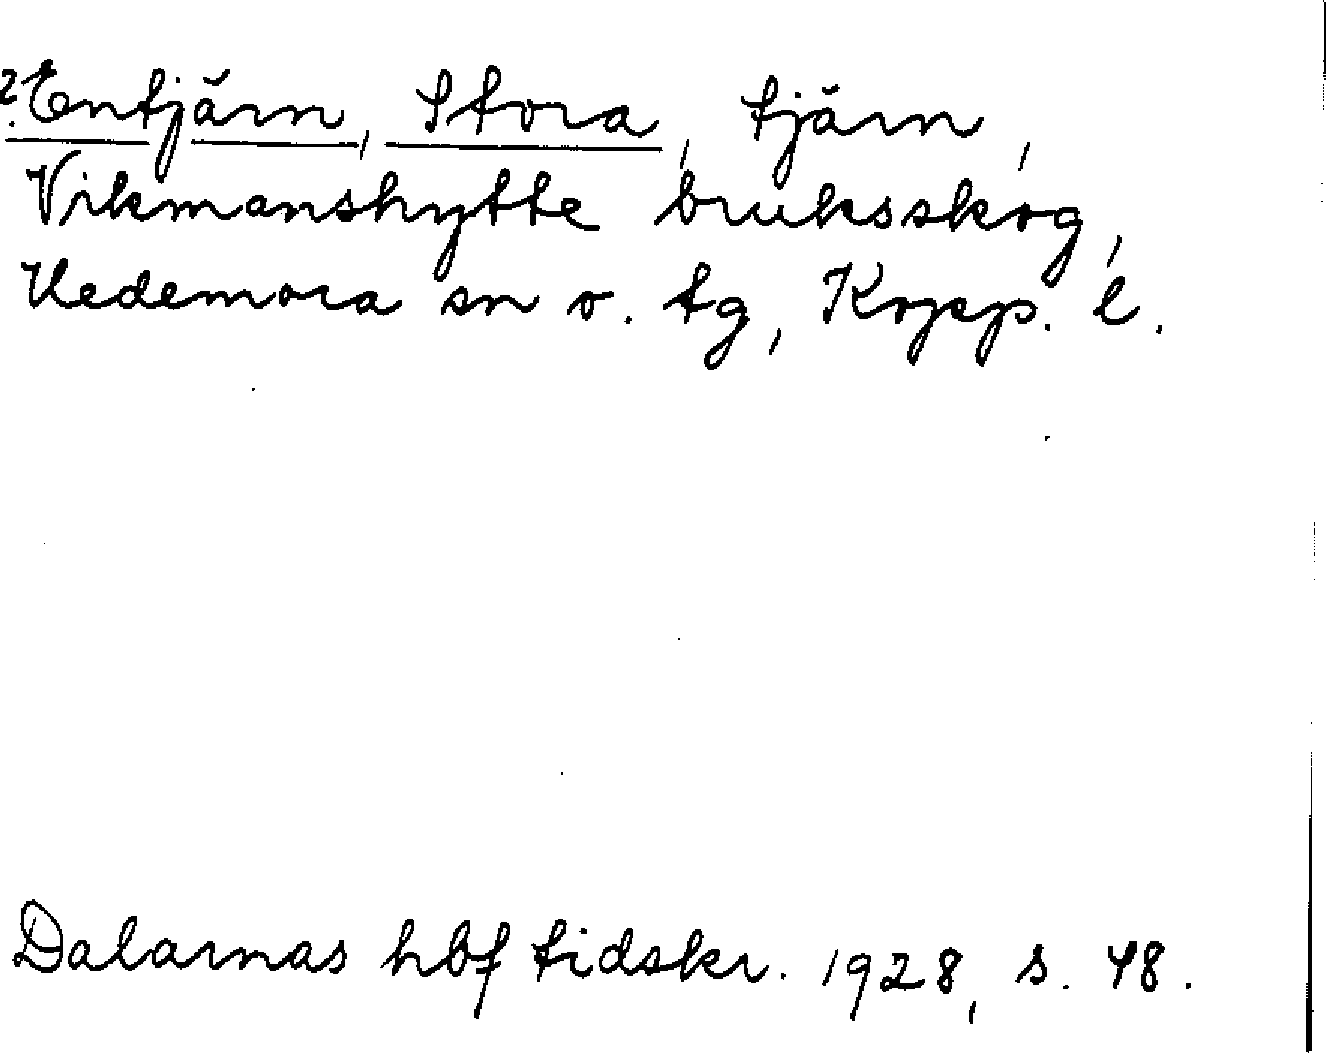 ?Entjärn, Stora, tjärn,
Vikmanshytte bruksskog,
Hedemora sn o. tg, Kopp. l.
Dalarnas hbf tidskr. 1928, s. 48.